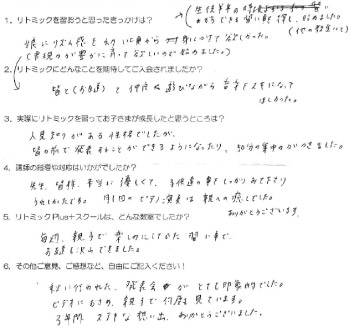 1. リトミックを習おうと思ったきっかけは？
生後半年の時
からできる習い事を探し、始めました。
(他の教室にて)
娘にリズム感を
身につけて欲しかった。
(表現力が豊かに育って欲しいので始めました。)
2. リトミックにどんなことを期待してご入会されましたか？
皆と(お友達) と仲良く遊びながら音楽を好きになって
ほしかった。
3. 実際にリトミックを習ってお子さまが成長したと思うところは？
人見知りがある性格でしたが、
皆の前で発表することができるようになったり、30分の集中力がつきました。
4. 講師の指導や対応はいかがでしたか？
先生、皆様、本当に優しくて、子供達の事をしっかりみて下さり
うれしかったです。月1回のピアノ演奏は親への癒しでした。
ありがとうございます。
5. リトミックPlus+スクールは、どんな教室でしたか？
毎週、親子で楽しみにしていた習い事で、
お友達も沢山できました。
6. その他ご意見、ご感想など、自由にご記入ください！
行われた、発表会がとても印象的でした。
ビデオにおさめ、親子で何度も見ています。
3年間、ステキな想い出、ありがとうございました。